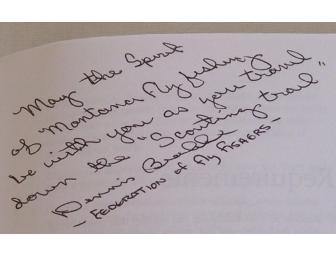 May the Spirit
of Montana Fly fishing
be with you as you travel
down the "Scouting trail"
Dennis
- FEDERATION of Fly FISHERS -
Requirements